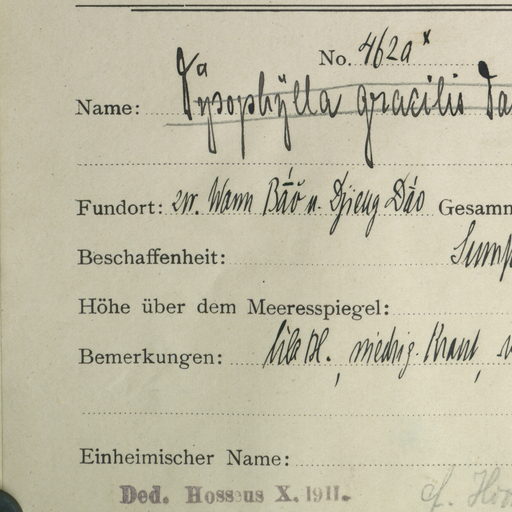 No. 462a x
Name: Dysophylla gracilis Da
Fundort: zw. Wann Báö u. Djieng Dáo Gesamm
Beschaffenheit: Sump
Höhe über dem Meeresspiegel:
Bemerkungen: lila Bl., niedrig. Kraut,
Einheimischer Name:
Ded. Hosseus X. 1911.
cf.